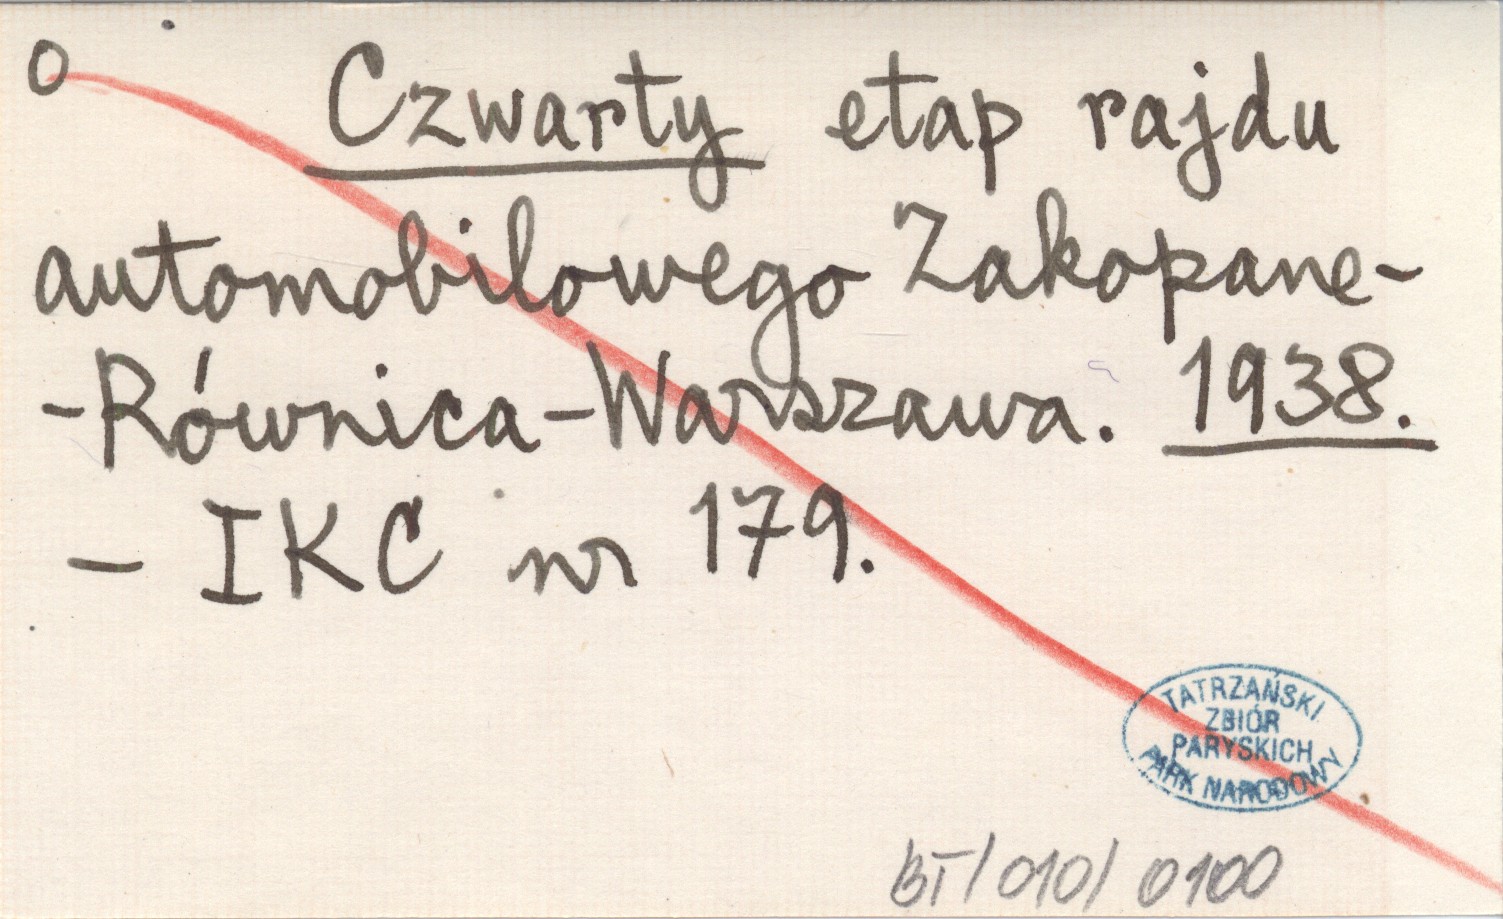 O
Czwarty etap rajdu
automobilowego Zakopane-
-Równica-Warszawa. 1938.
- IKC nr 179.
TATRZAŃSKI
ZBIÓR
PARYSKICH
PARK NARODOWY
BT/010/0100